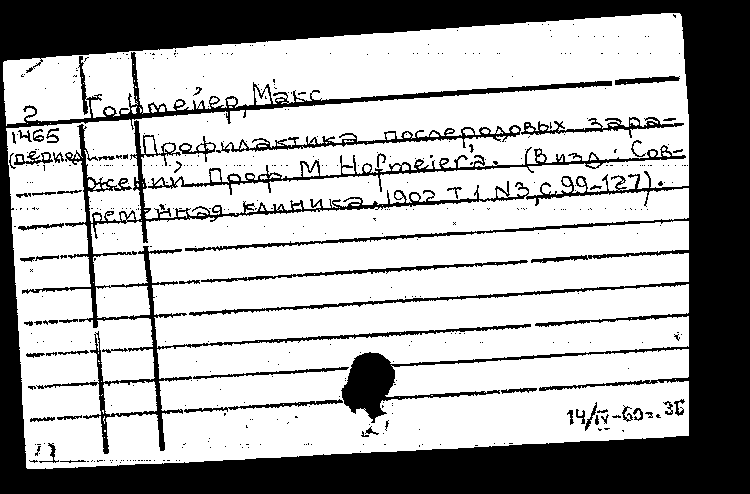 2 Гофмейер, Макс
1465 Профилактика послеродовых зара-
(период) жений Проф. М Hofmeier'a. (В изд: Сов-
ременная клиника. 1902 Т.1 N3, с. 99-127).
14/IV-60г. ЗБ